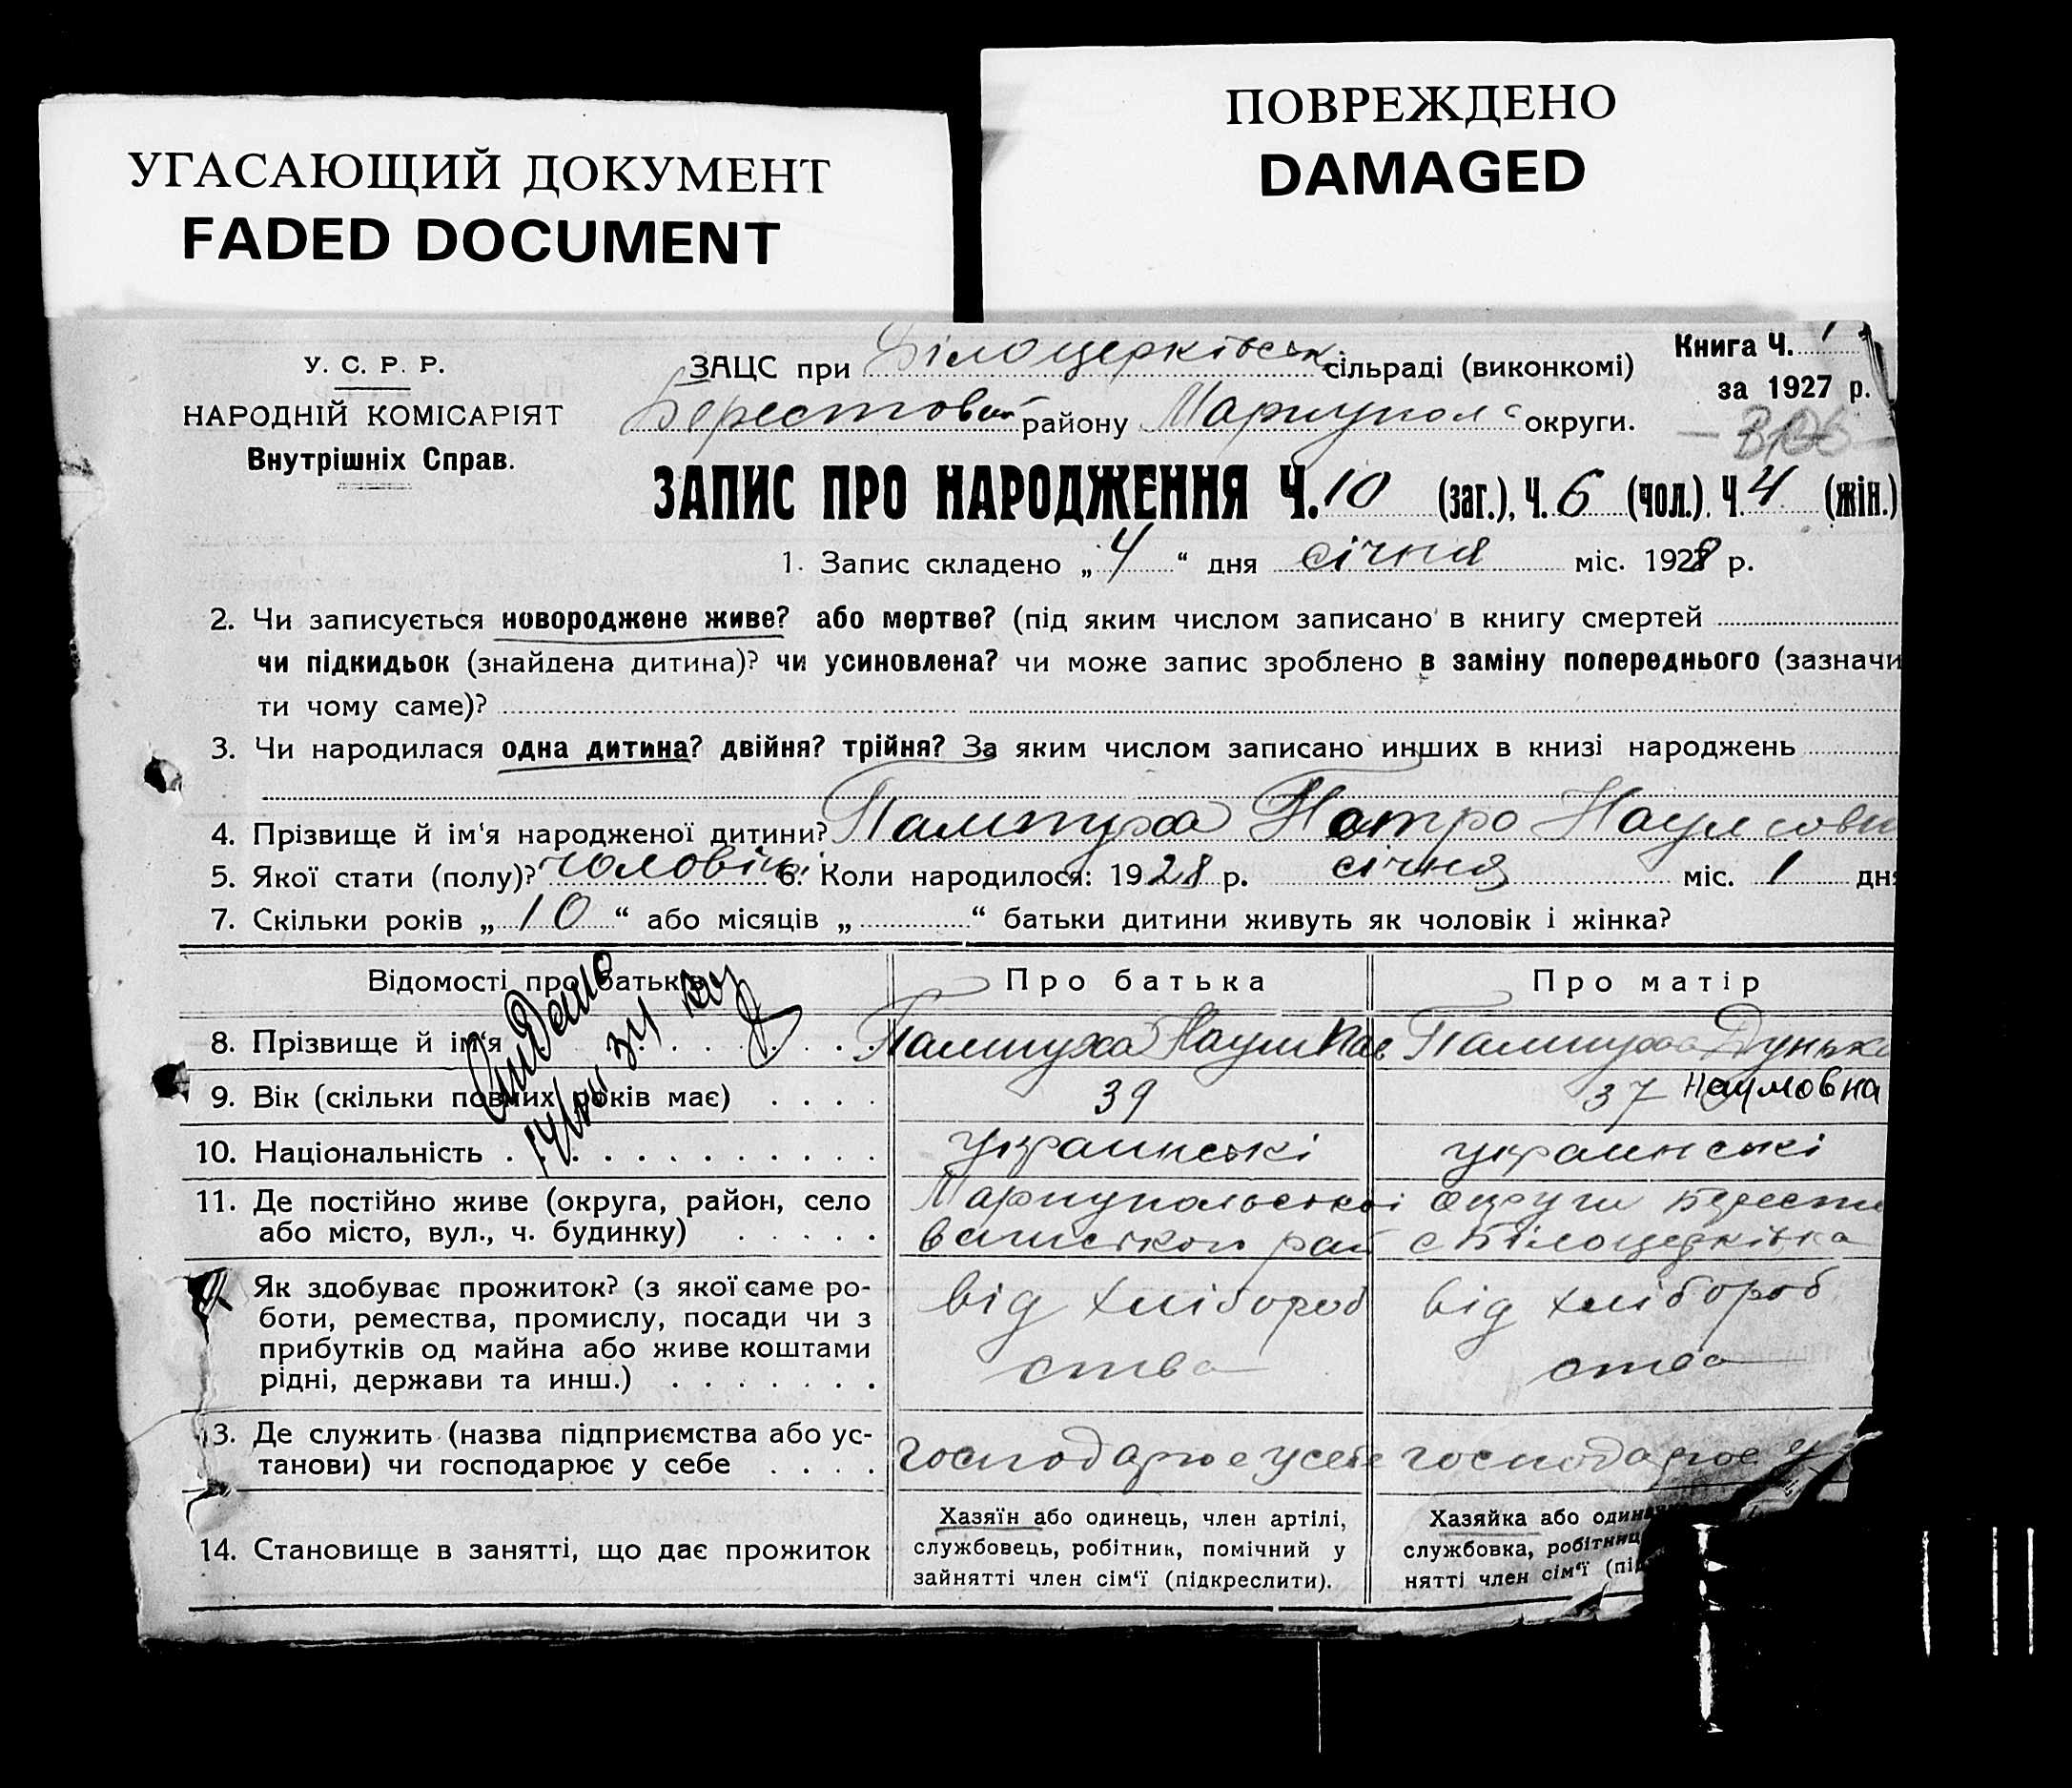 УГАСАЮЩИЙ ДОКУМЕНТ
FADED DOCUMENT
ПОВРЕЖДЕНО
DAMAGED
У. С. Р. Р.
НАРОДНІЙ КОМІСАРІЯТ
Внутрішніх Справ.
ЗАЦС при Білоцерківськ сільраді (виконкомі)
Берестовий району Маріупол округи.
Книга Ч. 1
за 1927 р.
ЗАПИС ПРО НАРОДЖЕННЯ Ч. 10 (заг.), Ч. 6 (чол.). Ч. 4 (жін.)
1. Запис складено „ 4 “ дня січня міс. 1928 р.
2. Чи записується новороджене живе? або мертве? (під яким числом записано в книгу смертей
чи підкидьок (знайдена дитина)? чи усиновлена? чи може запис зроблено в заміну попереднього (зазначи
ти чому саме)?
3. Чи народилася одна дитина? двійня? трійня? За яким числом записано инших в книзі народжень
4. Прізвище й ім‘я народженої дитини? Пампуха Петро Наумови
5. Якої стати (полу)? чоловіч. 6. Коли народилося: 1928 р. січня міс. 1 дня
7. Скільки років „ 10 “ або місяців „ “ батьки дитини живуть як чоловік і жінка?
Відомості про батьків
Про батька
Про матір
8. Прізвище й ім‘я
Пампуха Наум Пав
Пампуха Дунька
Наумовна
9. Вік (скільки повних років має)
39
37
10. Національність
украинські
украинські
11. Де постійно живе (округа, район, село
або місто, вул., ч. будинку)
Мариупольської округи Берест
вашской рай с Білоцерківка
Як здобуває прожиток? (з якої саме ро-
боти, ремества, промислу, посади чи з
прибутків од майна або живе коштами
рідні, держави та инш.)
від хлібороб
ства
від хлібороб
ства
13. Де служить (назва підприємства або ус-
танови) чи господарює у себе
господарює у себе
господарює у
14. Становище в занятті, що дає прожиток
Хазяїн або одинець, член артілі,
службовець, робітник, помічний у
зайнятті член сім‘ї (підкреслити).
Хазяйка або один
службовка, робітниц
нятті член сім‘ї (під